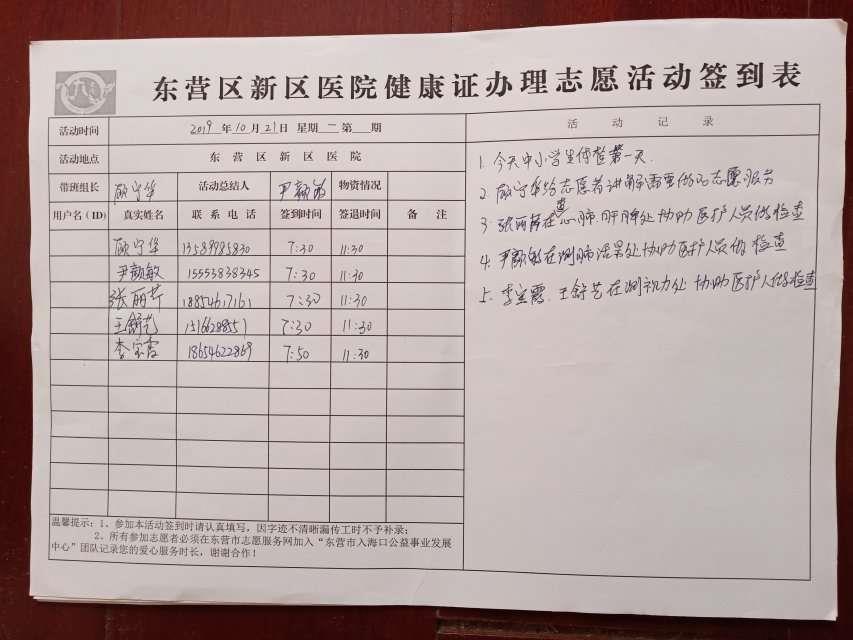 东营区新区医院健康证办理志愿活动签到表
活动时间 2019年10月21日 星期一 第 期
活动地点 东营区新区医院
带班组长 顾宁华 活动总结人 尹颜敏 物资情况
用户名(ID) 真实姓名 联系电话 签到时间 签退时间 备注
顾宁华 13589985830 7:30 11:30
尹颜敏 15553838345 7:30 11:30
张丽芹 18854617161 7:30 11:30
王舒艺 1516628855 7:30 11:30
李宝霞 18654622869 7:50 11:30
温馨提示:1、参加本活动签到时请认真填写,因字迹不清晰漏传工时不予补录;
2、所有参加志愿者必须在东营市志愿服务网加入“东营市入海口公益事业发展
中心”团队记录您的爱心服务时长,谢谢合作!
活动记录
1. 今天中小学生体检第一天.
2. 顾宁华给志愿者讲解需要做的志愿服务
3. 张丽芹在查心肺.肝脾处协助医护人员做检查
4. 尹颜敏在测肺活量处协助医护人员做检查
5. 李宝霞.王舒艺在测视力处协助医护人做检查